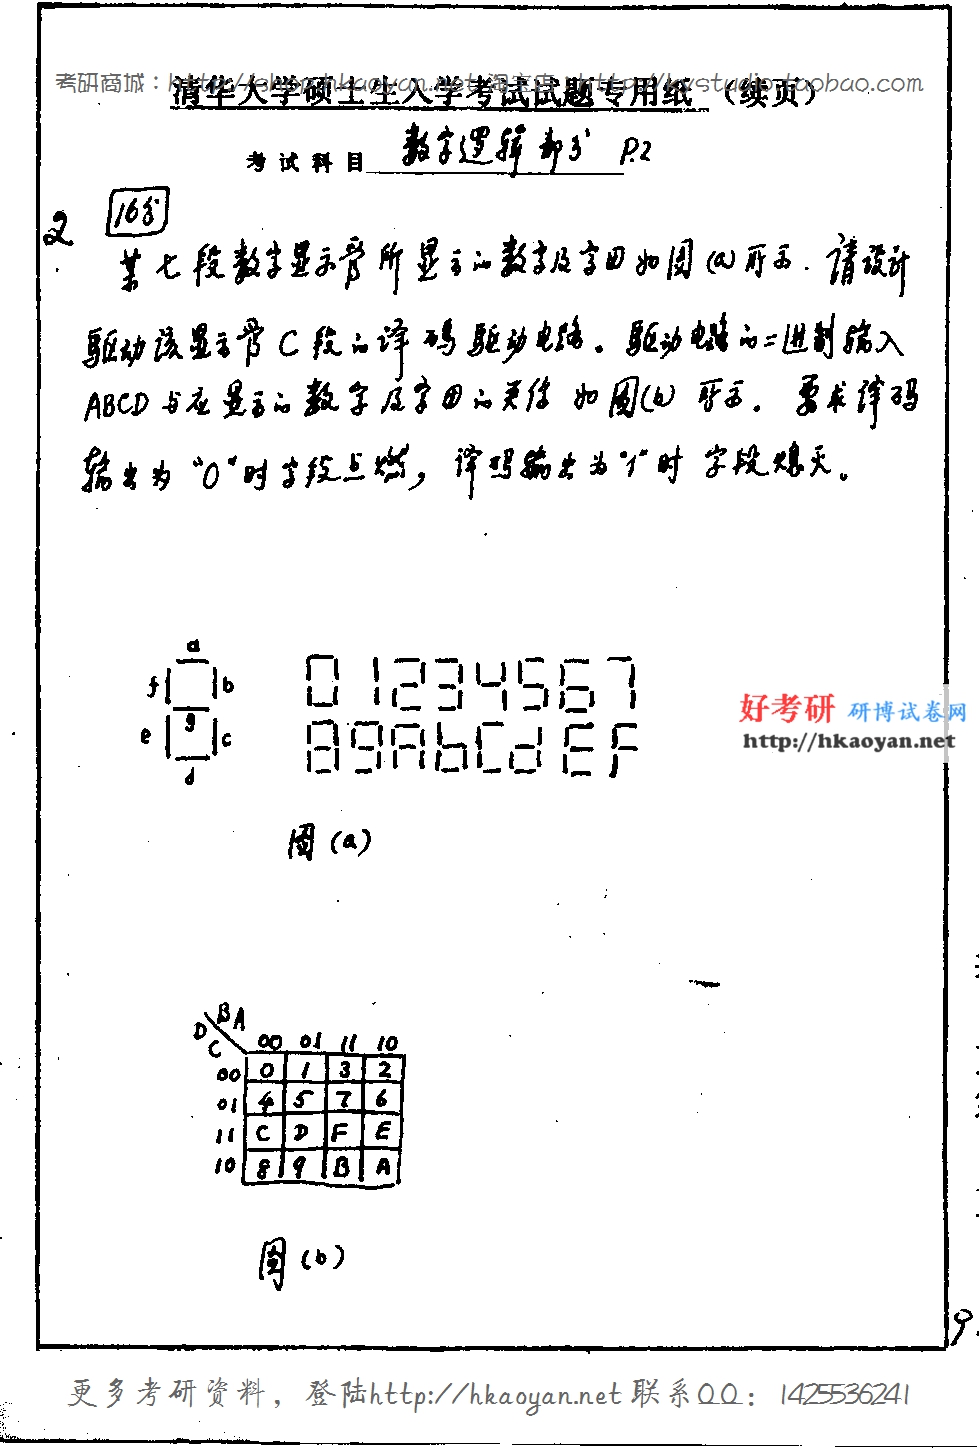 考研商城：http://shop.hkaoyan.net 淘宝店：http://kystudio.taobao.com
清华大学硕士生入学考试试题专用纸 （续页）
考试科目 数字逻辑部分 P.2
2 16分
某七段数字显示管所显示的数字及字母如图(a)所示. 请设计
驱动该显示管C段的译码驱动电路。驱动电路的二进制输入
ABCD与应显示的数字及字母的关系如图(b)所示。要求译码
输出为“0”时字段点燃，译码输出为“1”时字段熄灭。
a
f b
g
e c
d
0 1 2 3 4 5 6 7
8 9 A b C d E F
好考研 研博试卷网
http://hkaoyan.net
图(a)
BA
DC
00 01 11 10
00 0 1 3 2
01 4 5 7 6
11 C D F E
10 8 9 B A
图(b)
9.
更多考研资料，登陆http://hkaoyan.net 联系QQ：1425536241